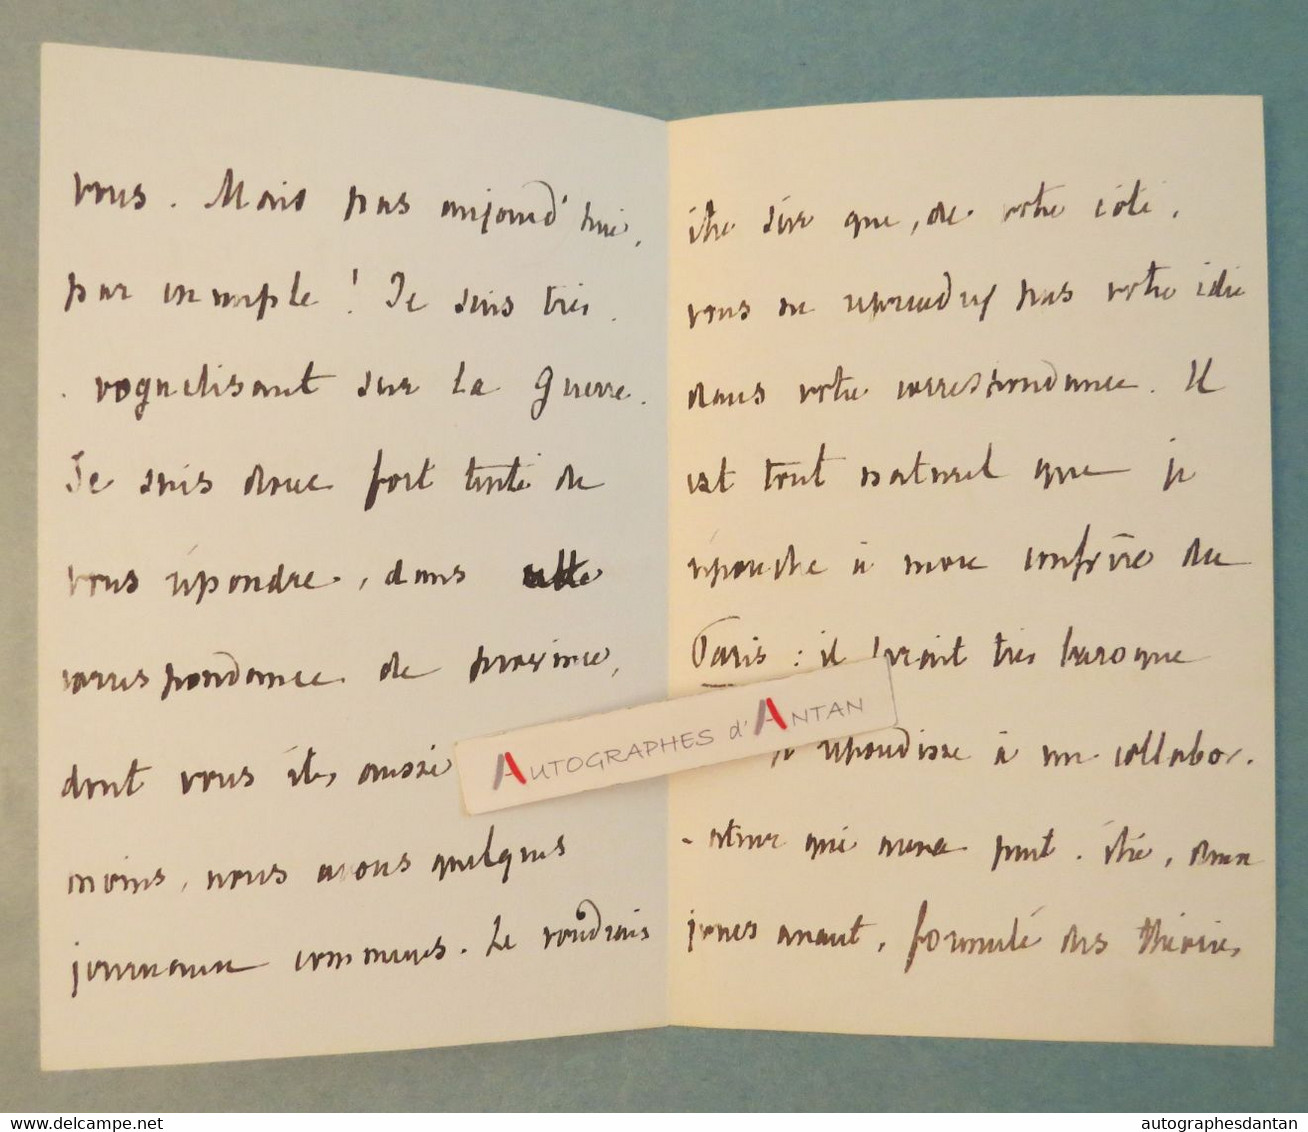 vous. Mais pas aujourd'hui,
par exemple ! Je suis très
voguelisant sur la guerre.
Je suis donc fort tenté de
vous répondre, dans cette
correspondance de province,
dont vous êtes aussi
moins, nous avons quelques
journaux communs. Je voudrais
être sûr que, de votre côté,
vous ne reprendrez pas votre idée
dans votre correspondance. Il
est tout naturel que je
réponde à mon confrère du
Paris : il serait très baroque
je répondisse à un collabor-
-ateur qui aura peut-être, deux
jours avant, formulé des théories
AUTOGRAPHES d'ANTAN
autographesdantan